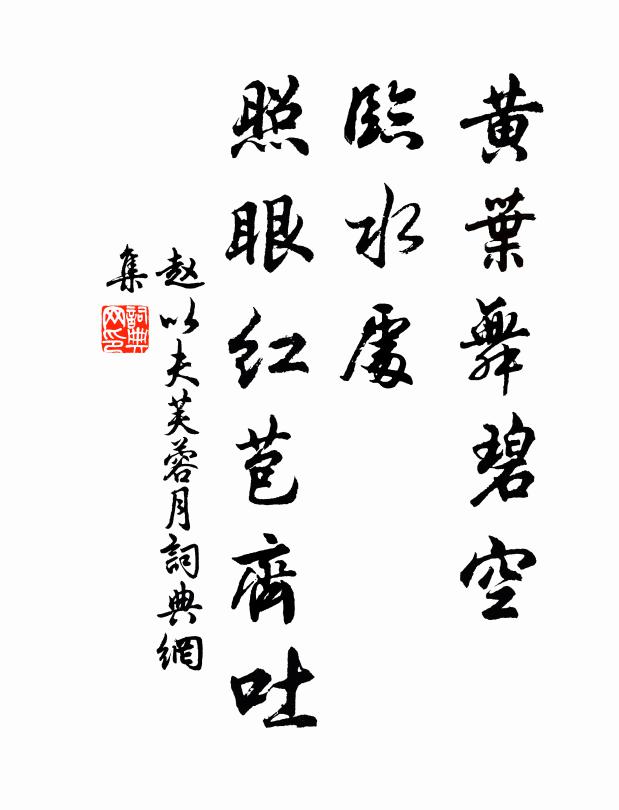 黃葉舞碧空
臨水處
照眼紅苞齊吐
趙以夫芙蓉月詞典網
集
詞典
网印